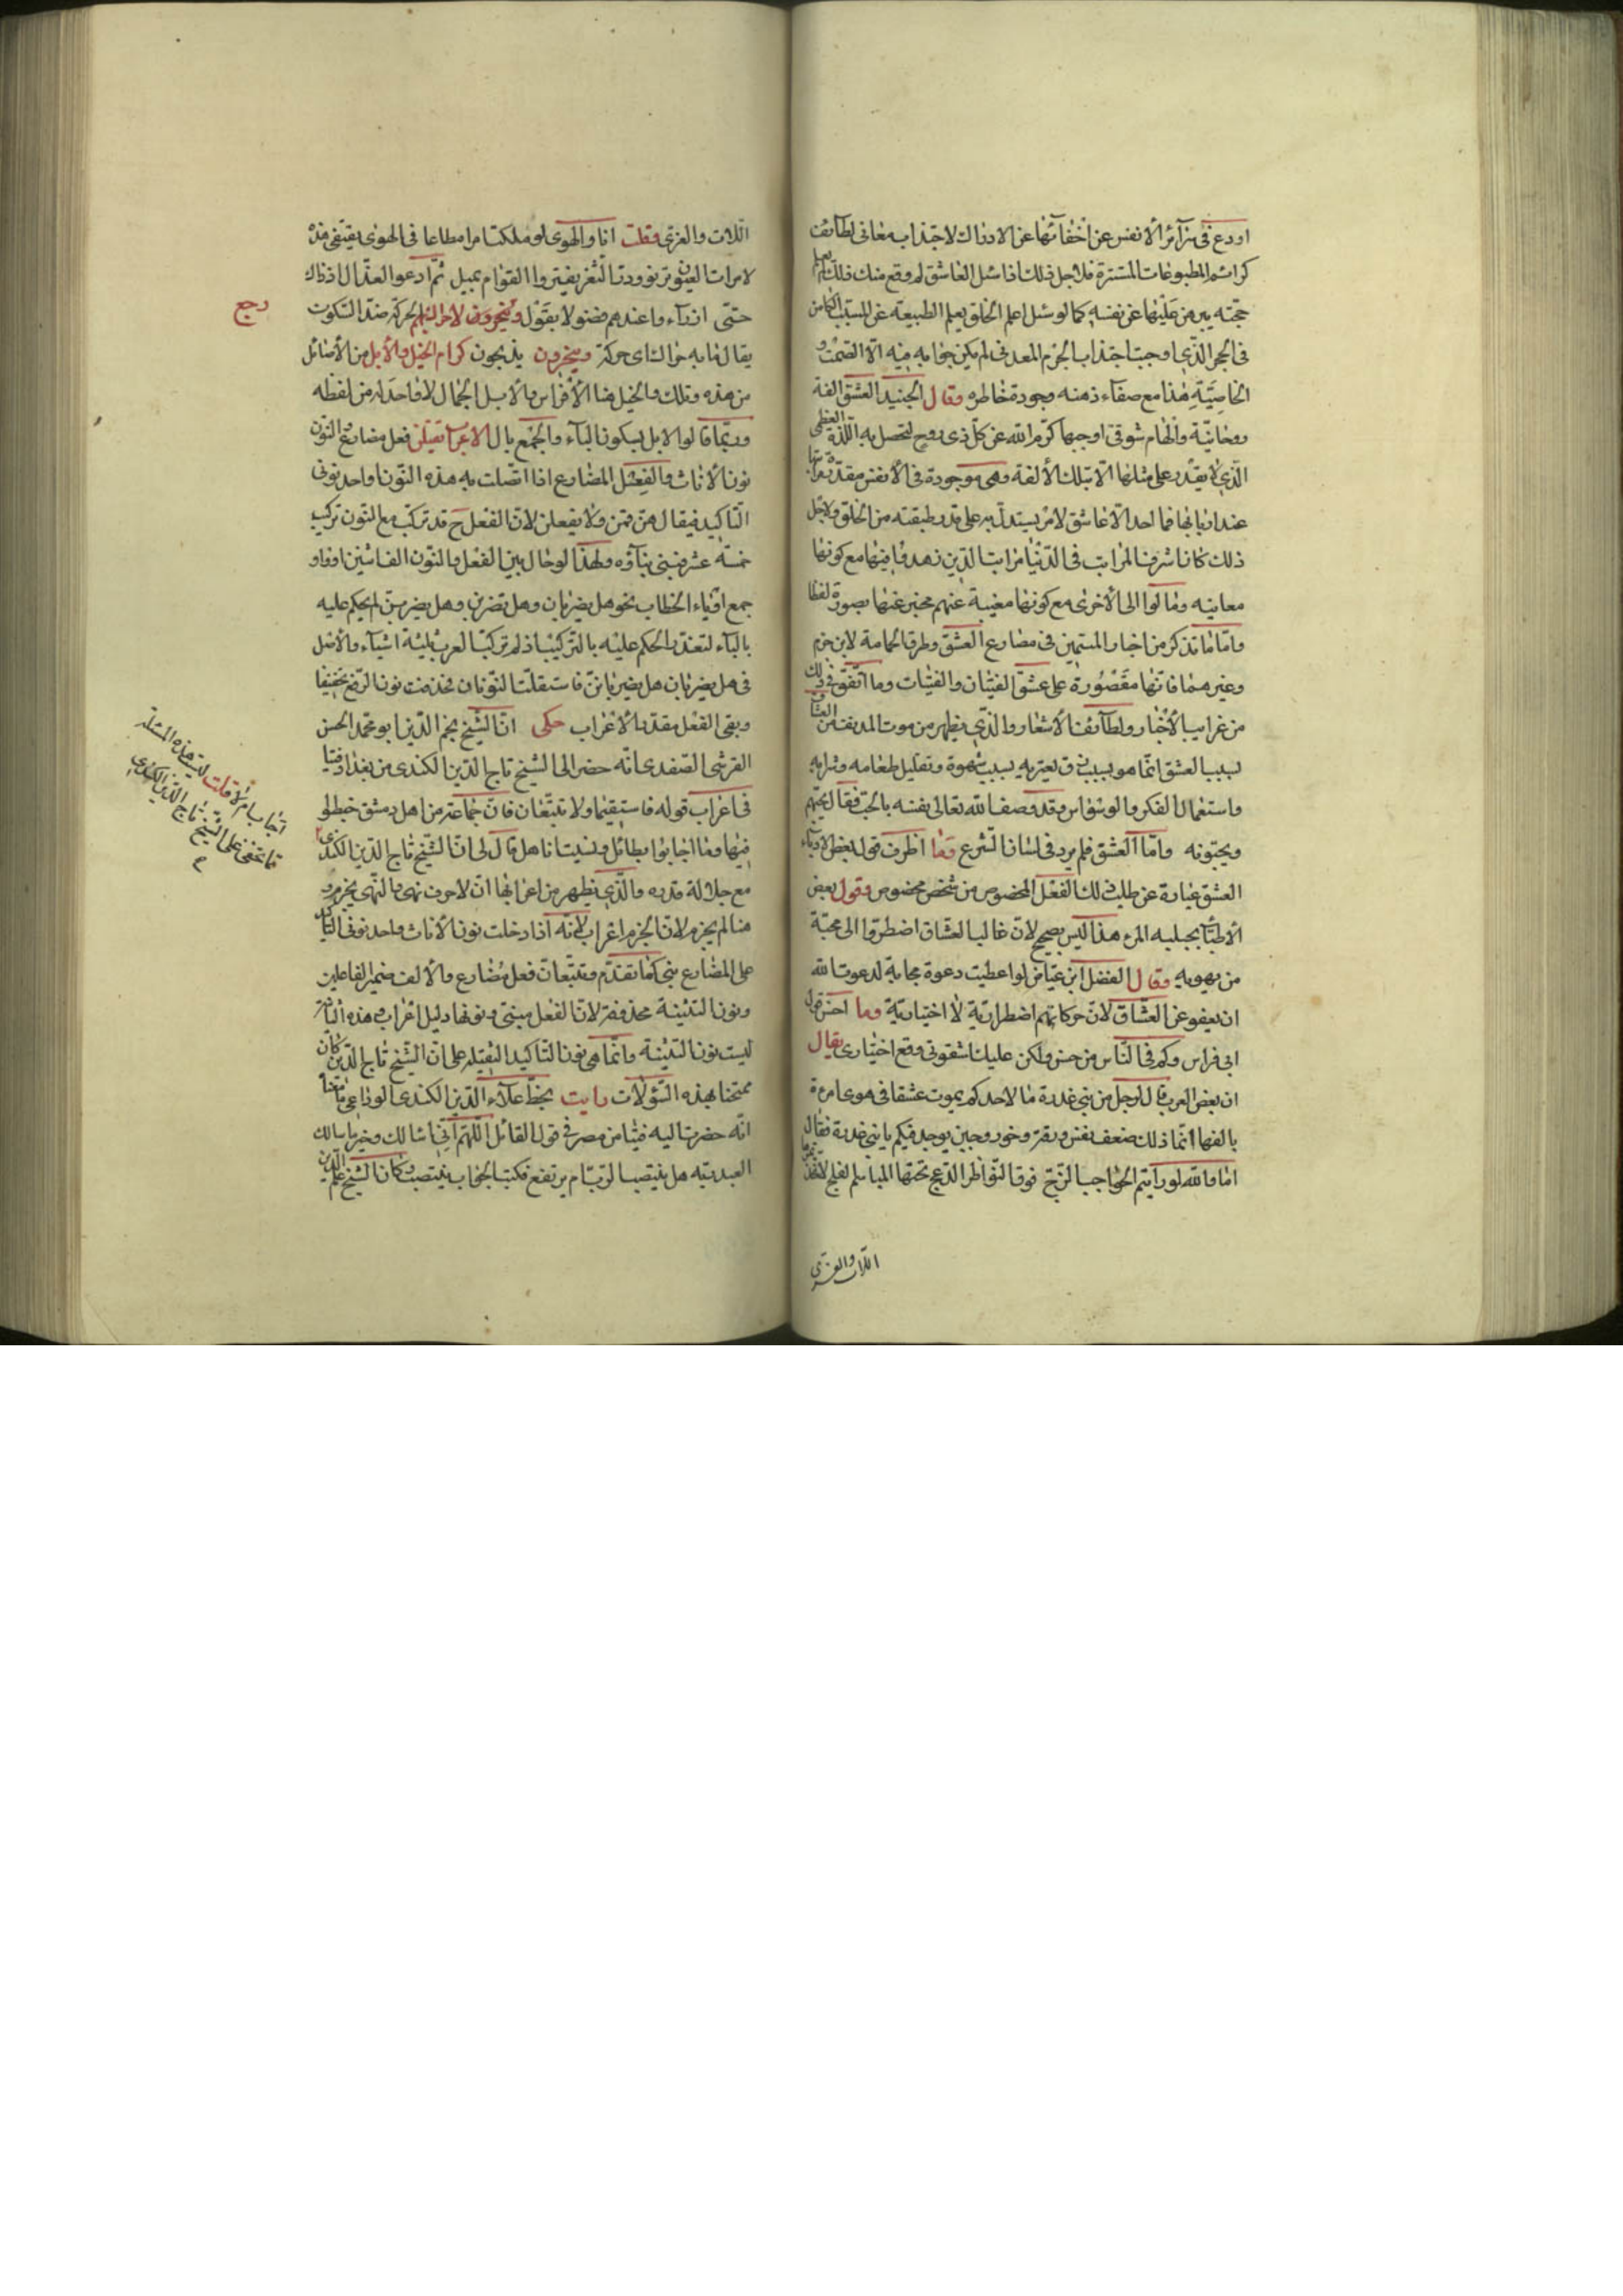 اودع في سرآئر الأنفس عن اخفآئها عن الادراك لاجتذابه معاني لطآئف
كرائم المطبوعات المستترة فلاجل ذلك اذا سئل العاشق لم وقع منك ذلك لم
حجته يبرهن عليها عن نفسه كما لو سئل اعلم الخلق بعلم الطبيعة عن السبب الكامن
في الحجر الذي اوجب اجتذاب الجرم المعدني لم يكن جوابه فيه الا الصمت و
الخاصية هذا مع صفآء ذهنه وجودة خاطره وقال الجنيد العشق الفة
روحانية والهام شوقي اوجبها كرم الله عن كل ذي روح لتحصل به اللذة العظمى
الذي لا يقدر على مثلها الا بتلك الألفة وهي موجودة في الأنفس مقدرة مراتبها
عند اربابها فما احد الا عاشق لامر يستدل به على قدر طبقته من الخلق ولاجل
ذلك كان اشرف المراتب في الدنيا مراتب الذين زهدوا فيها مع كونها
معاينة ومالوا الى الأخرى مع كونها مغيبة عنهم مخبر عنها بصورة لفظا
واما ما تذكر من اخبار المتيمين في مصارع العشق وطوق الحمامة لابن حزم
وغيرهما فانها مقصورة على عشق الفتيان والفتيات وما اتفق في ذلك
من غرايب الأخبار ولطآئف الأشعار والذي يظهر من موت المدنفين من العشاق
بسبب العشق انما هو بسبب دق يعتريه بسبب شهوة وتقليل طعامه وشرابه
واستعمال الفكر والوسواس وقد وصف الله تعالى نفسه بالحب فقال يحبهم
ويحبونه واما العشق فلم يرد في لسان الشرع وما اظرف قول بعض الادبآء
العشق عبارة عن طلب ذلك الفعل المخصوص من شخص مخصوص وقول بعض
الأطبا يجبلبه المرء هذا ليس بصحيح لان غالب العشاق اضطروا الى محبة
من يهويه وقال الفضل ابن عياض لو اعطيت دعوة مجابة لدعوت الله
ان يعفو عن العشاق لان حركاتهم اضطرارية لا اختيارية وما احسن قول
ابي فراس وكم في الناس من حسن ولكن عليك لشقوتي وقع اختياري يقال
ان بعض العرب قال لرجل من بني عذرة ما لاحدكم يموت عشقا في هوى امرءة
يالفها انما ذلك ضعف نفس ورقة وخور وجبن يوجد فيكم يا بني عذرة فقال
اما والله لو رأيتم الحواجب الزج فوق النواظر الدعج تحتها المباسم الفلج لاتخذتموها
اللات والعزى
اللات والعزى وقلت انا والهوى لو ملكت امرا مطاعا في الهوى يقتفي هذه
لامرت العيون تزور ودت الثغر يفتر والقوام يميل ثم ادعوا العذال اذ ذاك
حتى اذ رآء واعندهم فضولا بقول ويتحرون لاحراك بهم الحركة ضد السكون
يقال ما به حراك اي حركة وينحرون يذبحون كرام الخيل والأبل من الأصائل
من هذه وتلك والخيل هنا الأفراس والأبل الجمال لا واحد له من لفظه
وربما قالوا الابل بسكون البآء والجمع ابال الاعراب تقتلن فعل مضارع النون
نون الأناث والفعل المضارع اذا اتصلت به هذه النون او احد نوني
التاكيد فيقال هن قمن ولا يفعلن لان الفعل ح قد تركب مع النون تركيب
خمسة عشر فبني بنآؤه ولهذا لو حال بين الفعل والنون الف اثنين او واو
جمع او ياء الخطاب نحو هل يضربان وهل تضربن وهل يضربن لم يحكم عليه
بالبنآء لتعذر الحكم عليه بالتركيب اذ لم تركب العرب ثلثة اشيآء والأصل
في هل يضربان هل يضربانن فاستثقلت النونان فحذفت نون الرفع تخفيفا
وبقي الفعل مقدر الأعراب حكى ان الشيخ نجم الدين ابو محمد الحسن
القرشي الصفدي انه حضر الى الشيخ تاج الدين الكندي من بغداد فتيا
في اعراب قوله فاستقيما ولا تتبعان فان جماعة من اهل دمشق خبطوا
فيها وما اجابوا بطائل ونسيت انا هل قال لي ان الشيخ تاج الدين الكندي
مع جلالة قدره والذي يظهر من اعرابها ان لا حرف نهي والنهي يجزم و
هنا لم يجزم لان الجزم اعراب لانه اذا دخلت نون الأناث او احد نوني التاكيد
على المضارع بني كما تقدم وتتبعان فعل مضارع والألف ضمير الفاعلين
ونون التثنية محذوفة لان الفعل مبني ونونها دليل اعراب هذه الثابتة
ليست نون التثنية وانما هي نون التاكيد الثقيلة على ان الشيخ تاج الدين كان
ممتحنا بهذه السؤلات رايت بخط علآء الدين الكندي الوداعي ما معناه
انه حضرت اليه فتيا من مصر في قول القائل اللهم اني اسالك وخير ما سالك
العبد ربه هل ينتصب الرب ام يرتفع فكتب الجواب ينتصب وكان الشيخ علم الدين
رجع
اجاب ام لا قلت ليت هذه المسئلة
مما تخفى على الشيخ تاج الدين الكندي
م